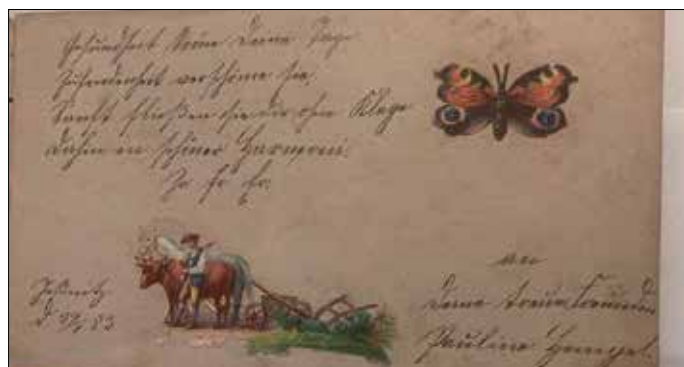 Gesundheit kröne Deine Tage
Zufriedenheit verschöne sie,
Sanft fließen sie dir ohne Klage
dahin in schöner Harmonie.
Jeßnitz
an
Deine treue Freundin
Pauline